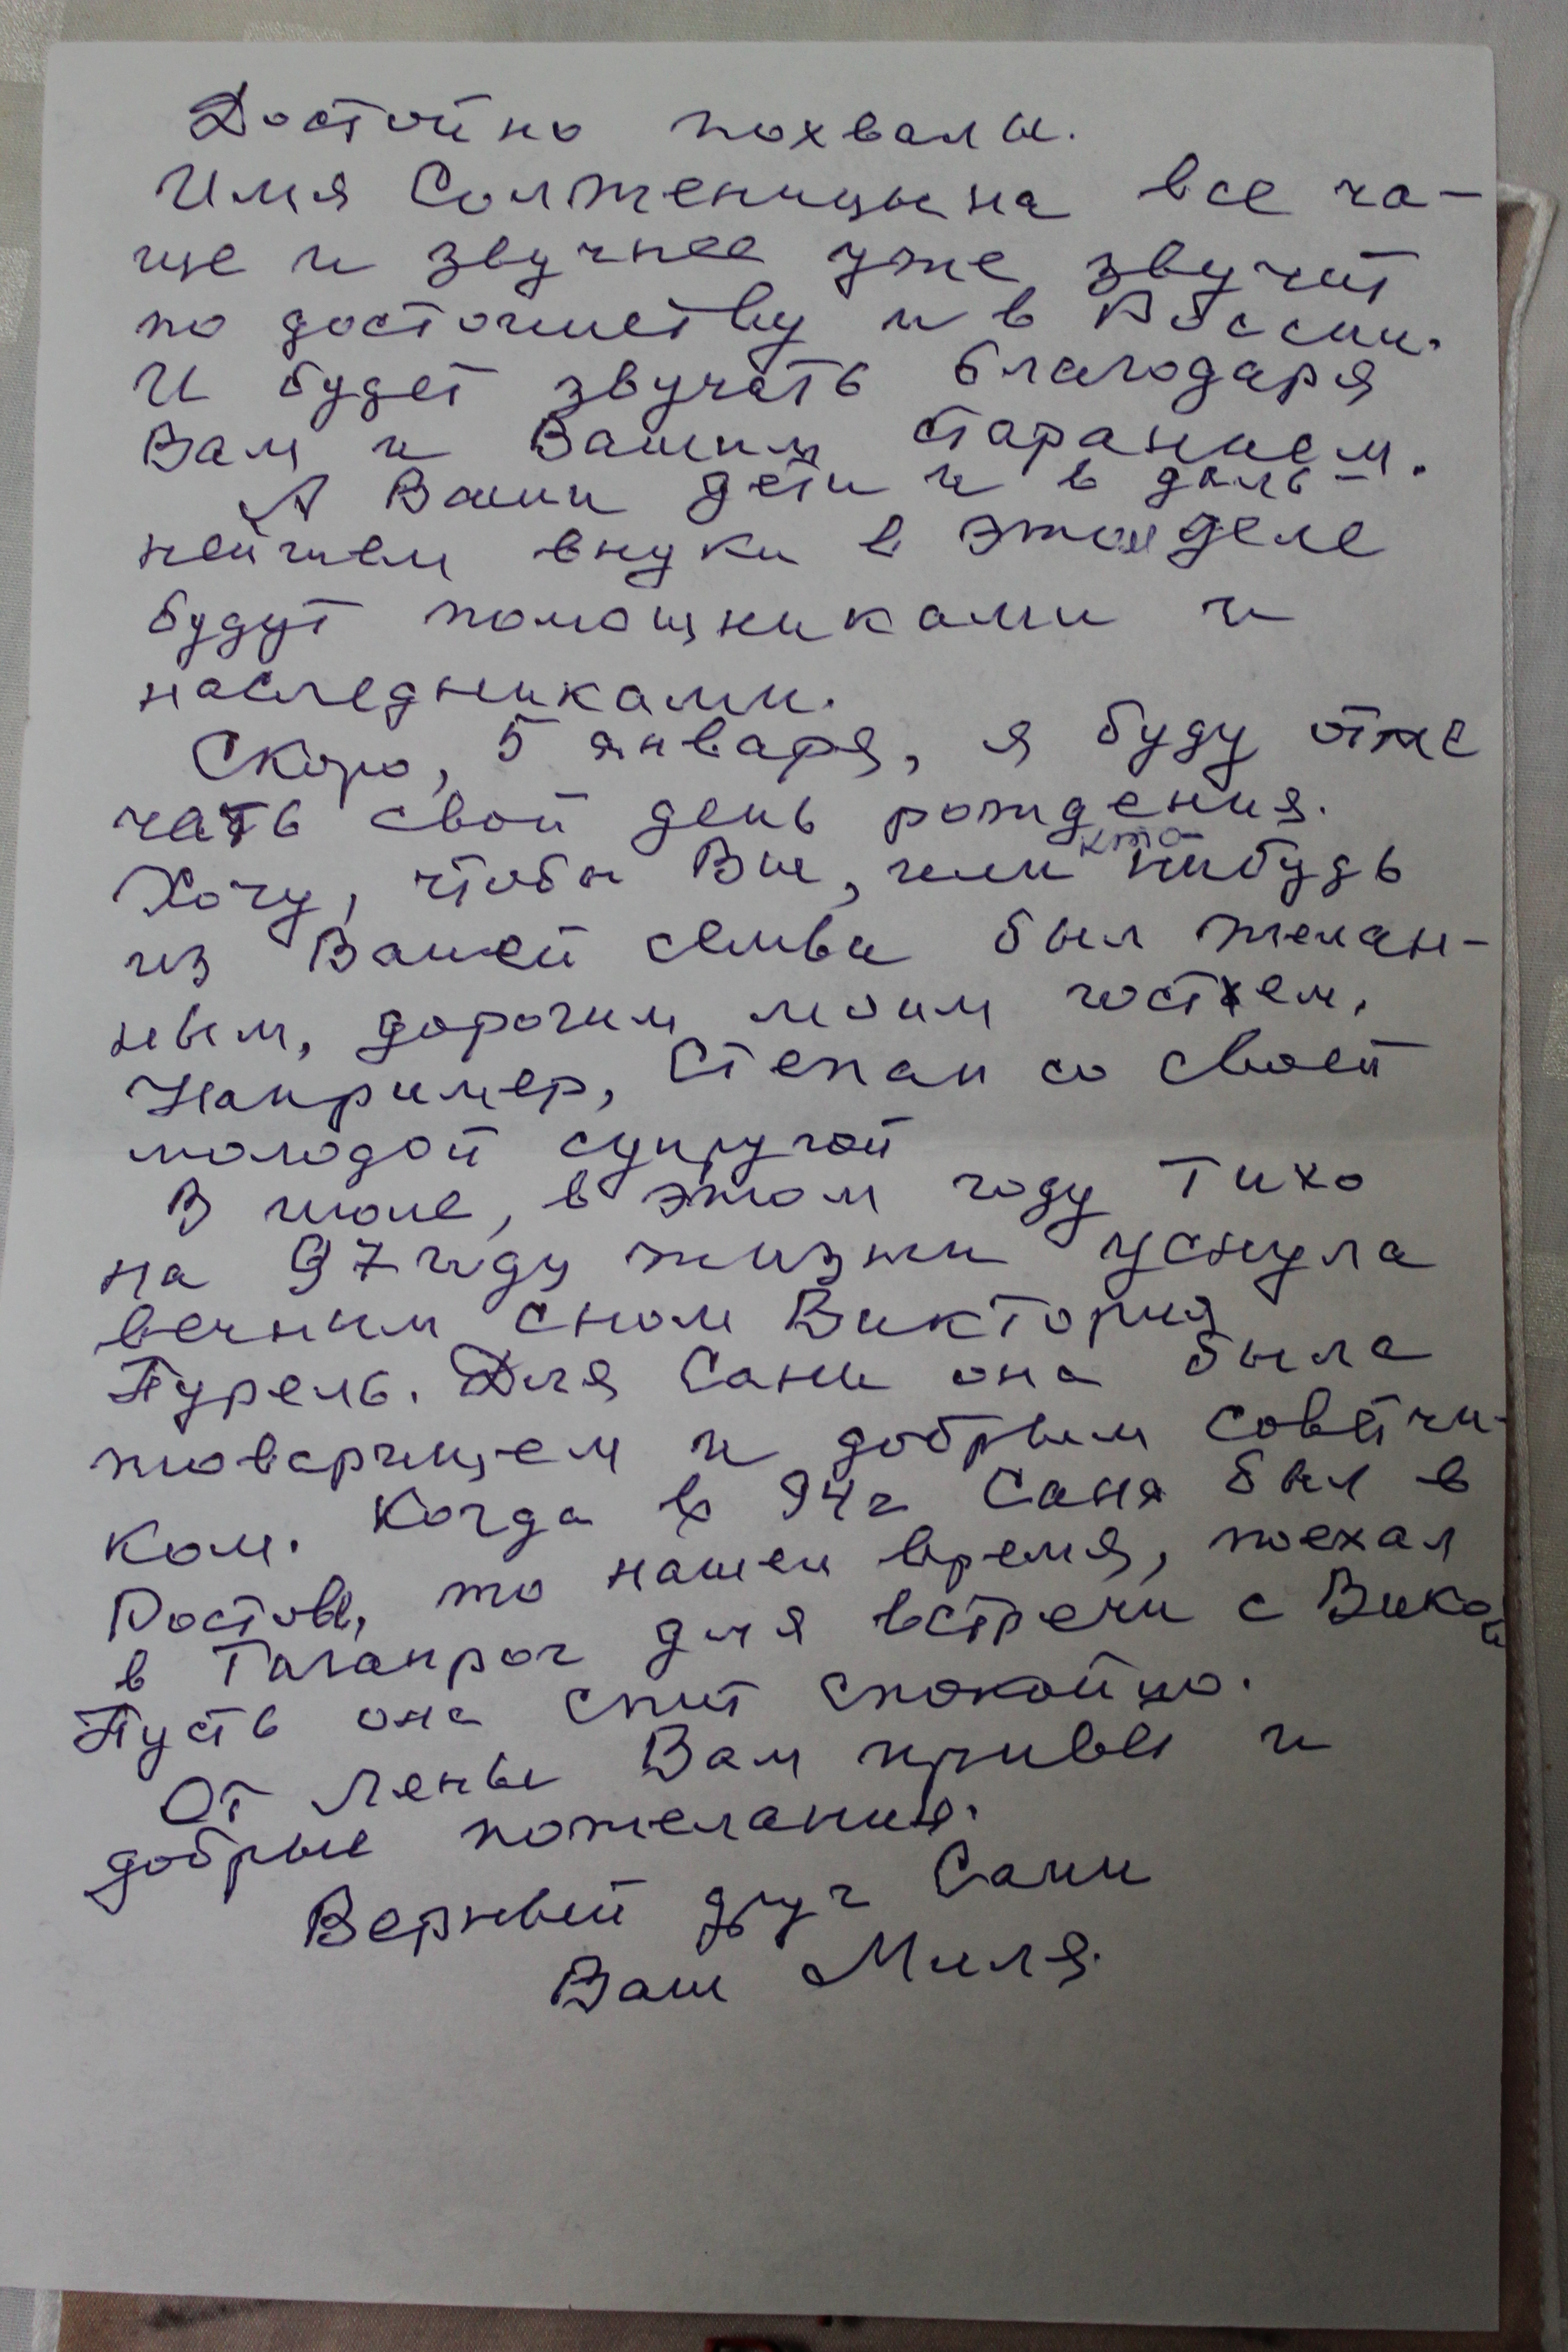 Достойно похвалы.
Имя Солженицына все ча-
ще и звучнее уже звучит
по достоинству и в России.
И будет звучать благодаря
Вам и Вашим старанием.
А Ваши дети и в даль-
нейшем внуки в этом деле
будут помощниками и
наследниками.
Скоро, 5 января, я буду отме
чать свой день рождения.
Хочу, чтобы Вы, или кто-нибудь
из Вашей семьи был желан-
ным, дорогим моим гостем.
Например, Степан со своей
молодой супругой
В июле, в этом году тихо
на 97 году жизни уснула
вечным сном Виктория
Пурель. Для Сани она была
товарищем и добрым советчи-
ком. Когда в 94г Саня был в
Ростове, то нашел время, поехал
в Таганрог для встречи с Викой
Пусть она спит спокойно.
От Лены Вам привет и
добрые пожелания.
Верный друг Сани
Ваш Миля.